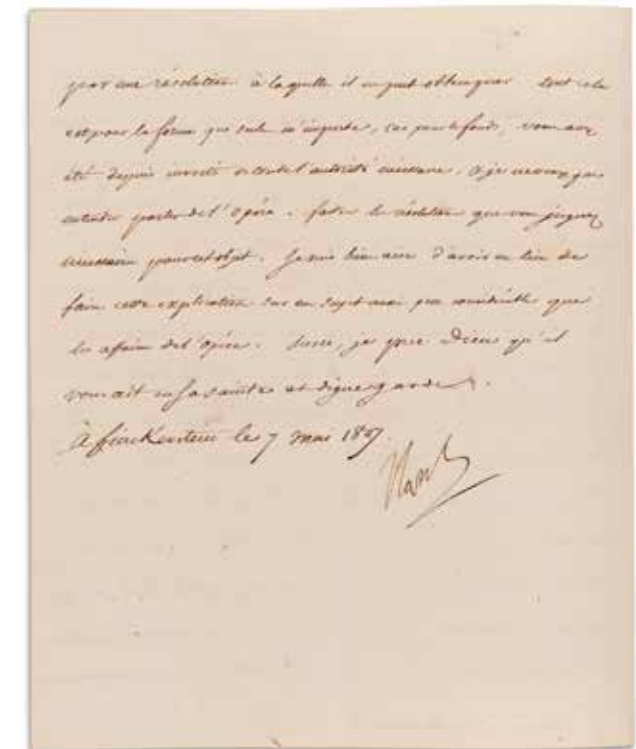 par une résolution à laquelle il ne peut obtempérer tout cela
est pour la forme qui seule m'importe, car pour le fonds, vous avez
été depuis investi de toute l'autorité nécessaire. Et je ne veux pas
entendre parler de l'opéra. faites la résolution que vous jugerez
nécessaire pour cet objet. Je suis bien aise d'avoir eu lieu de
faire cette explication sur un sujet aussi peu considérable que
les affaires de l'opéra. Sur ce, je prie Dieu qu'il
vous ait en sa sainte et digne garde.
à finckenstein le 7 mai 1807.